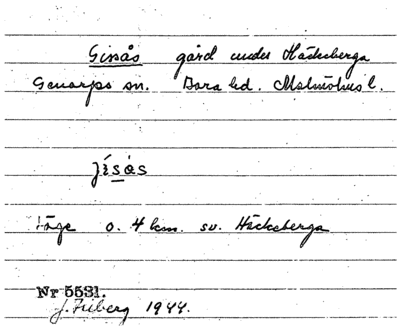 Gissås gård under Häckeberga
Genarps sn. Bara hd. Malmöhus l.
jísås
Läge o. 4 km. sv. Häckeberga
Nr 5531.
J. Friberg 1944.